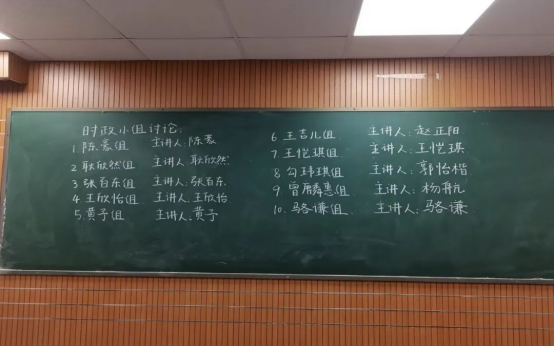 时政小组讨论:
1.陈豪组 主讲人:陈豪
2.耿欣然组 主讲人:耿欣然
3.张百东组 主讲人:张百东
4.王欣怡组 主讲人:王欣怡
5.黄予组 主讲人:黄予
6.王吉儿组 主讲人:赵正阳
7.王恺琪组 主讲人:王恺琪
8.勾玮琪组 主讲人:郭怡楷
9.曾麟惠组 主讲人:杨
10.骆谦组 主讲人:骆谦